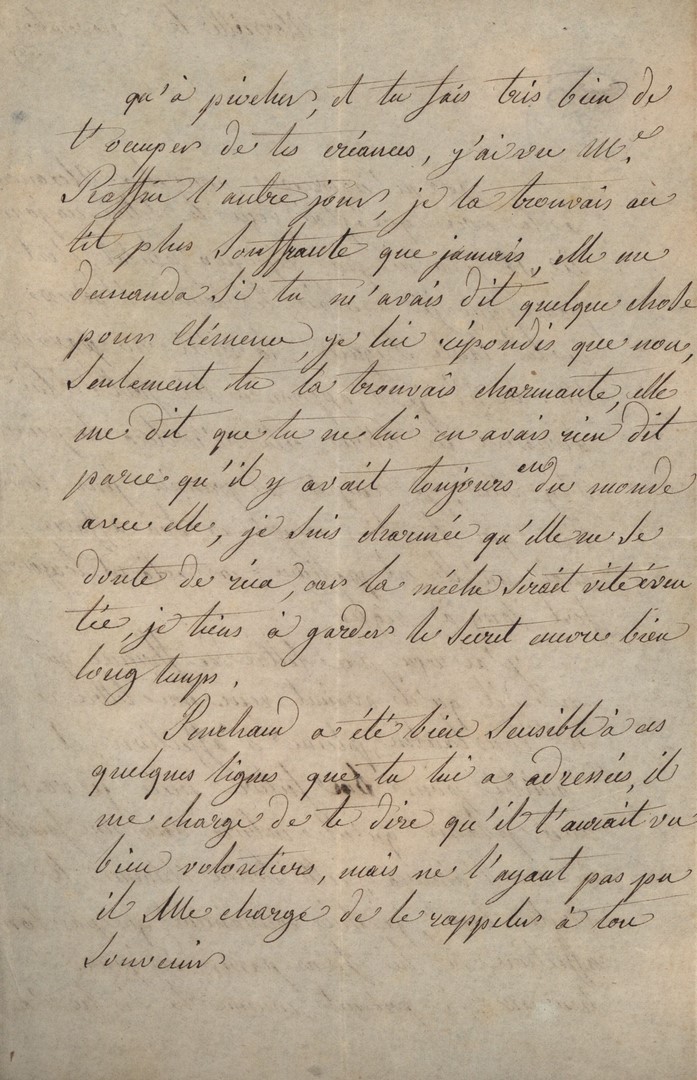 qu'à pêcher, et tu fais très bien de
t'occuper de tes créances, j'ai vu Me
Raffin l'autre jour, je la trouvais au
lit plus souffrante que jamais, elle me
demanda si tu m'avais dit quelque chose
pour Clémence, je lui répondis que non,
seulement tu la trouvais charmante, elle
me dit que tu ne lui en avais rien dit
parce qu'il y avait toujours eu du monde
avec elle, je suis charmée qu'elle ne se
doute de rien, car la mêche serait vite éven
tée, je tiens à garder le secret encore bien
long temps.
Penchaud a été bien sensible à ces
quelques lignes que tu lui a adressés, il
me charge de te dire qu'il t'aurait vu
bien volontiers, mais ne l'ayant pas pu
il Me charge de le rappeler à ton
souvenir